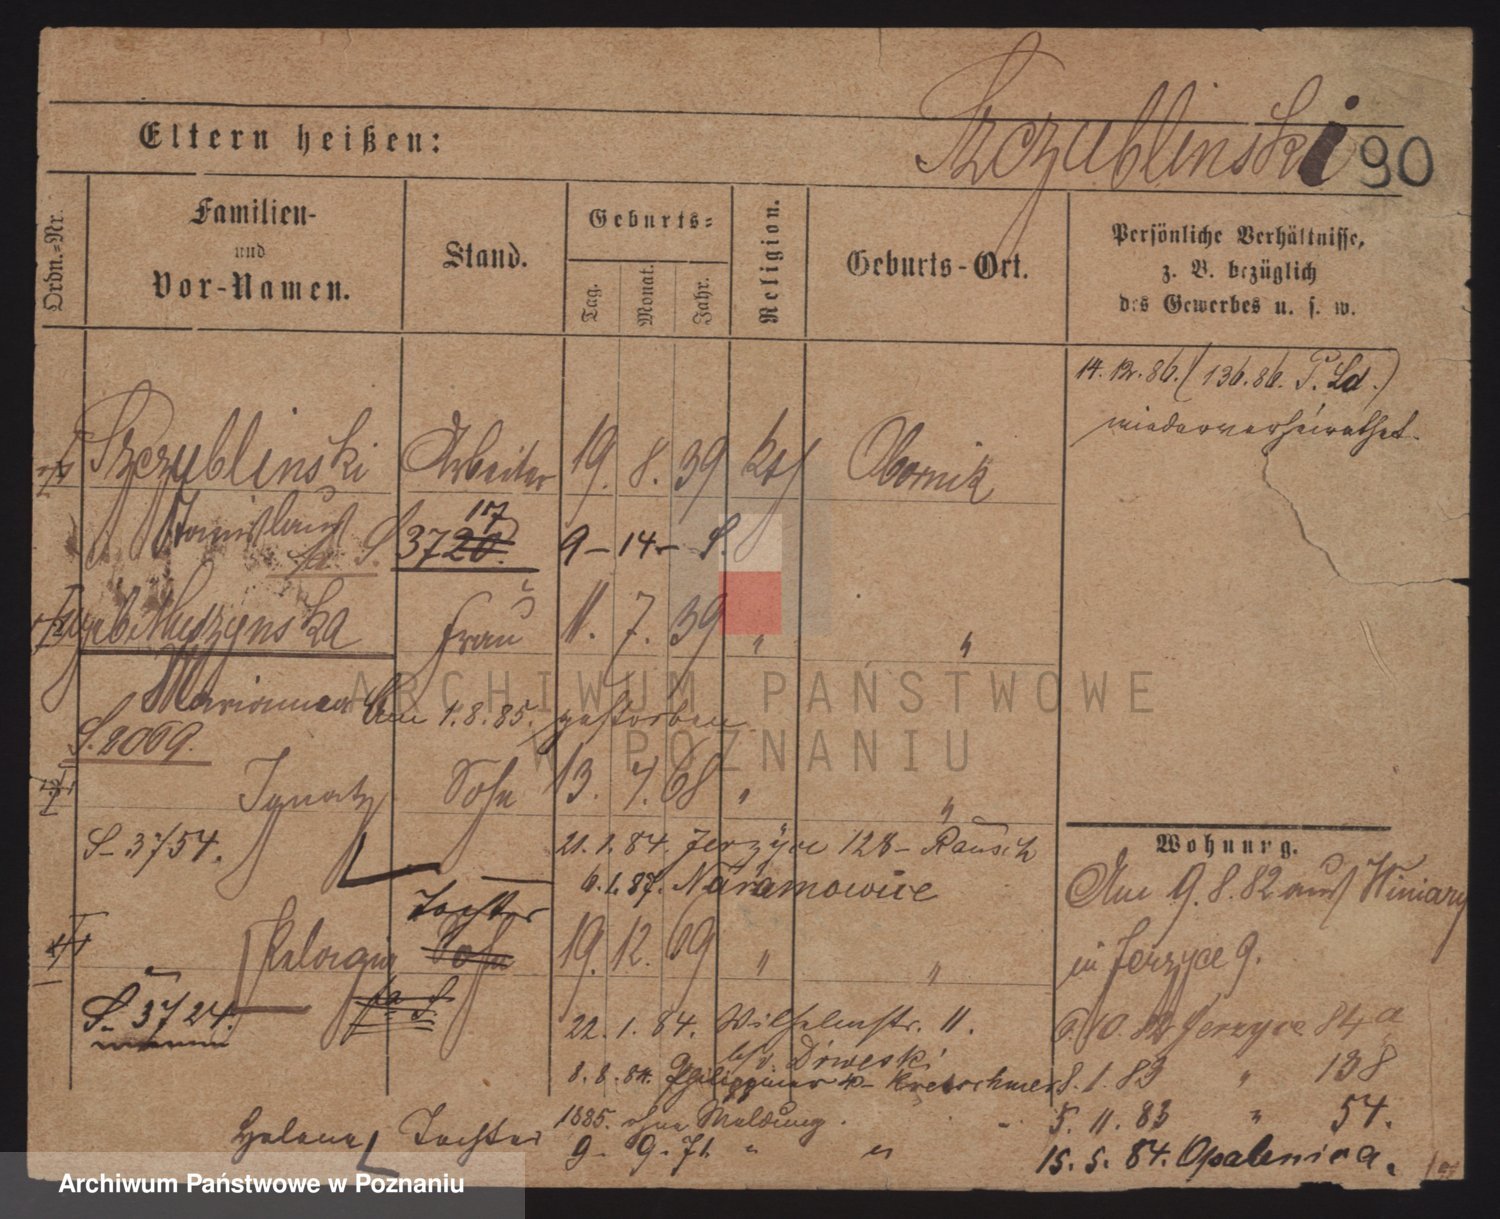 Szczublinski 90
Eltern heißen:
Ordn.-Nr.
Familien-
und
Vor-Namen.
Stand.
Geburts-
Tag.
Monat.
Jahr.
Religion.
Geburts-Ort.
Persönliche Verhältnisse,
z. B. bezüglich
des Gewerbes u. s. w.
14. 12. 86. (136. 86. P. Ld.)
wiederverheirathet.
Szczublinski Arbeiter 19. 8. 39 kth Obornik
Stanislaus
S. 3720. 17 9 - 14 - S.
geb. Muszynska Frau 11. 7. 39 " "
Marianna Am 1. 8. 85. gestorben
S. 2069.
Ignatz Sohn 13. 7. 68 " "
S. 3754. 21. 1. 84. Jerzyce 128 - Rausch
6. 1. 87. Naramowice
Tochter
Pelagia Sohn 19. 12. 69 " "
S. 3724.
22. 1. 84. Wilhelmstr. 11.
b/v. Drweski
8. 8. 84. Kretschmer
1885. ohne Meldung.
Helena Tochter 9. 9. 71. " "
Wohnung.
Am 9. 8. 82 aus Winiary
in Jerzyce 9.
Jerzyce 84a
8. 1. 83 " 138
5. 11. 83 " 54.
15. 5. 84. Opalenica.
ARCHIWUM PAŃSTWOWE
W POZNANIU
Archiwum Państwowe w Poznaniu